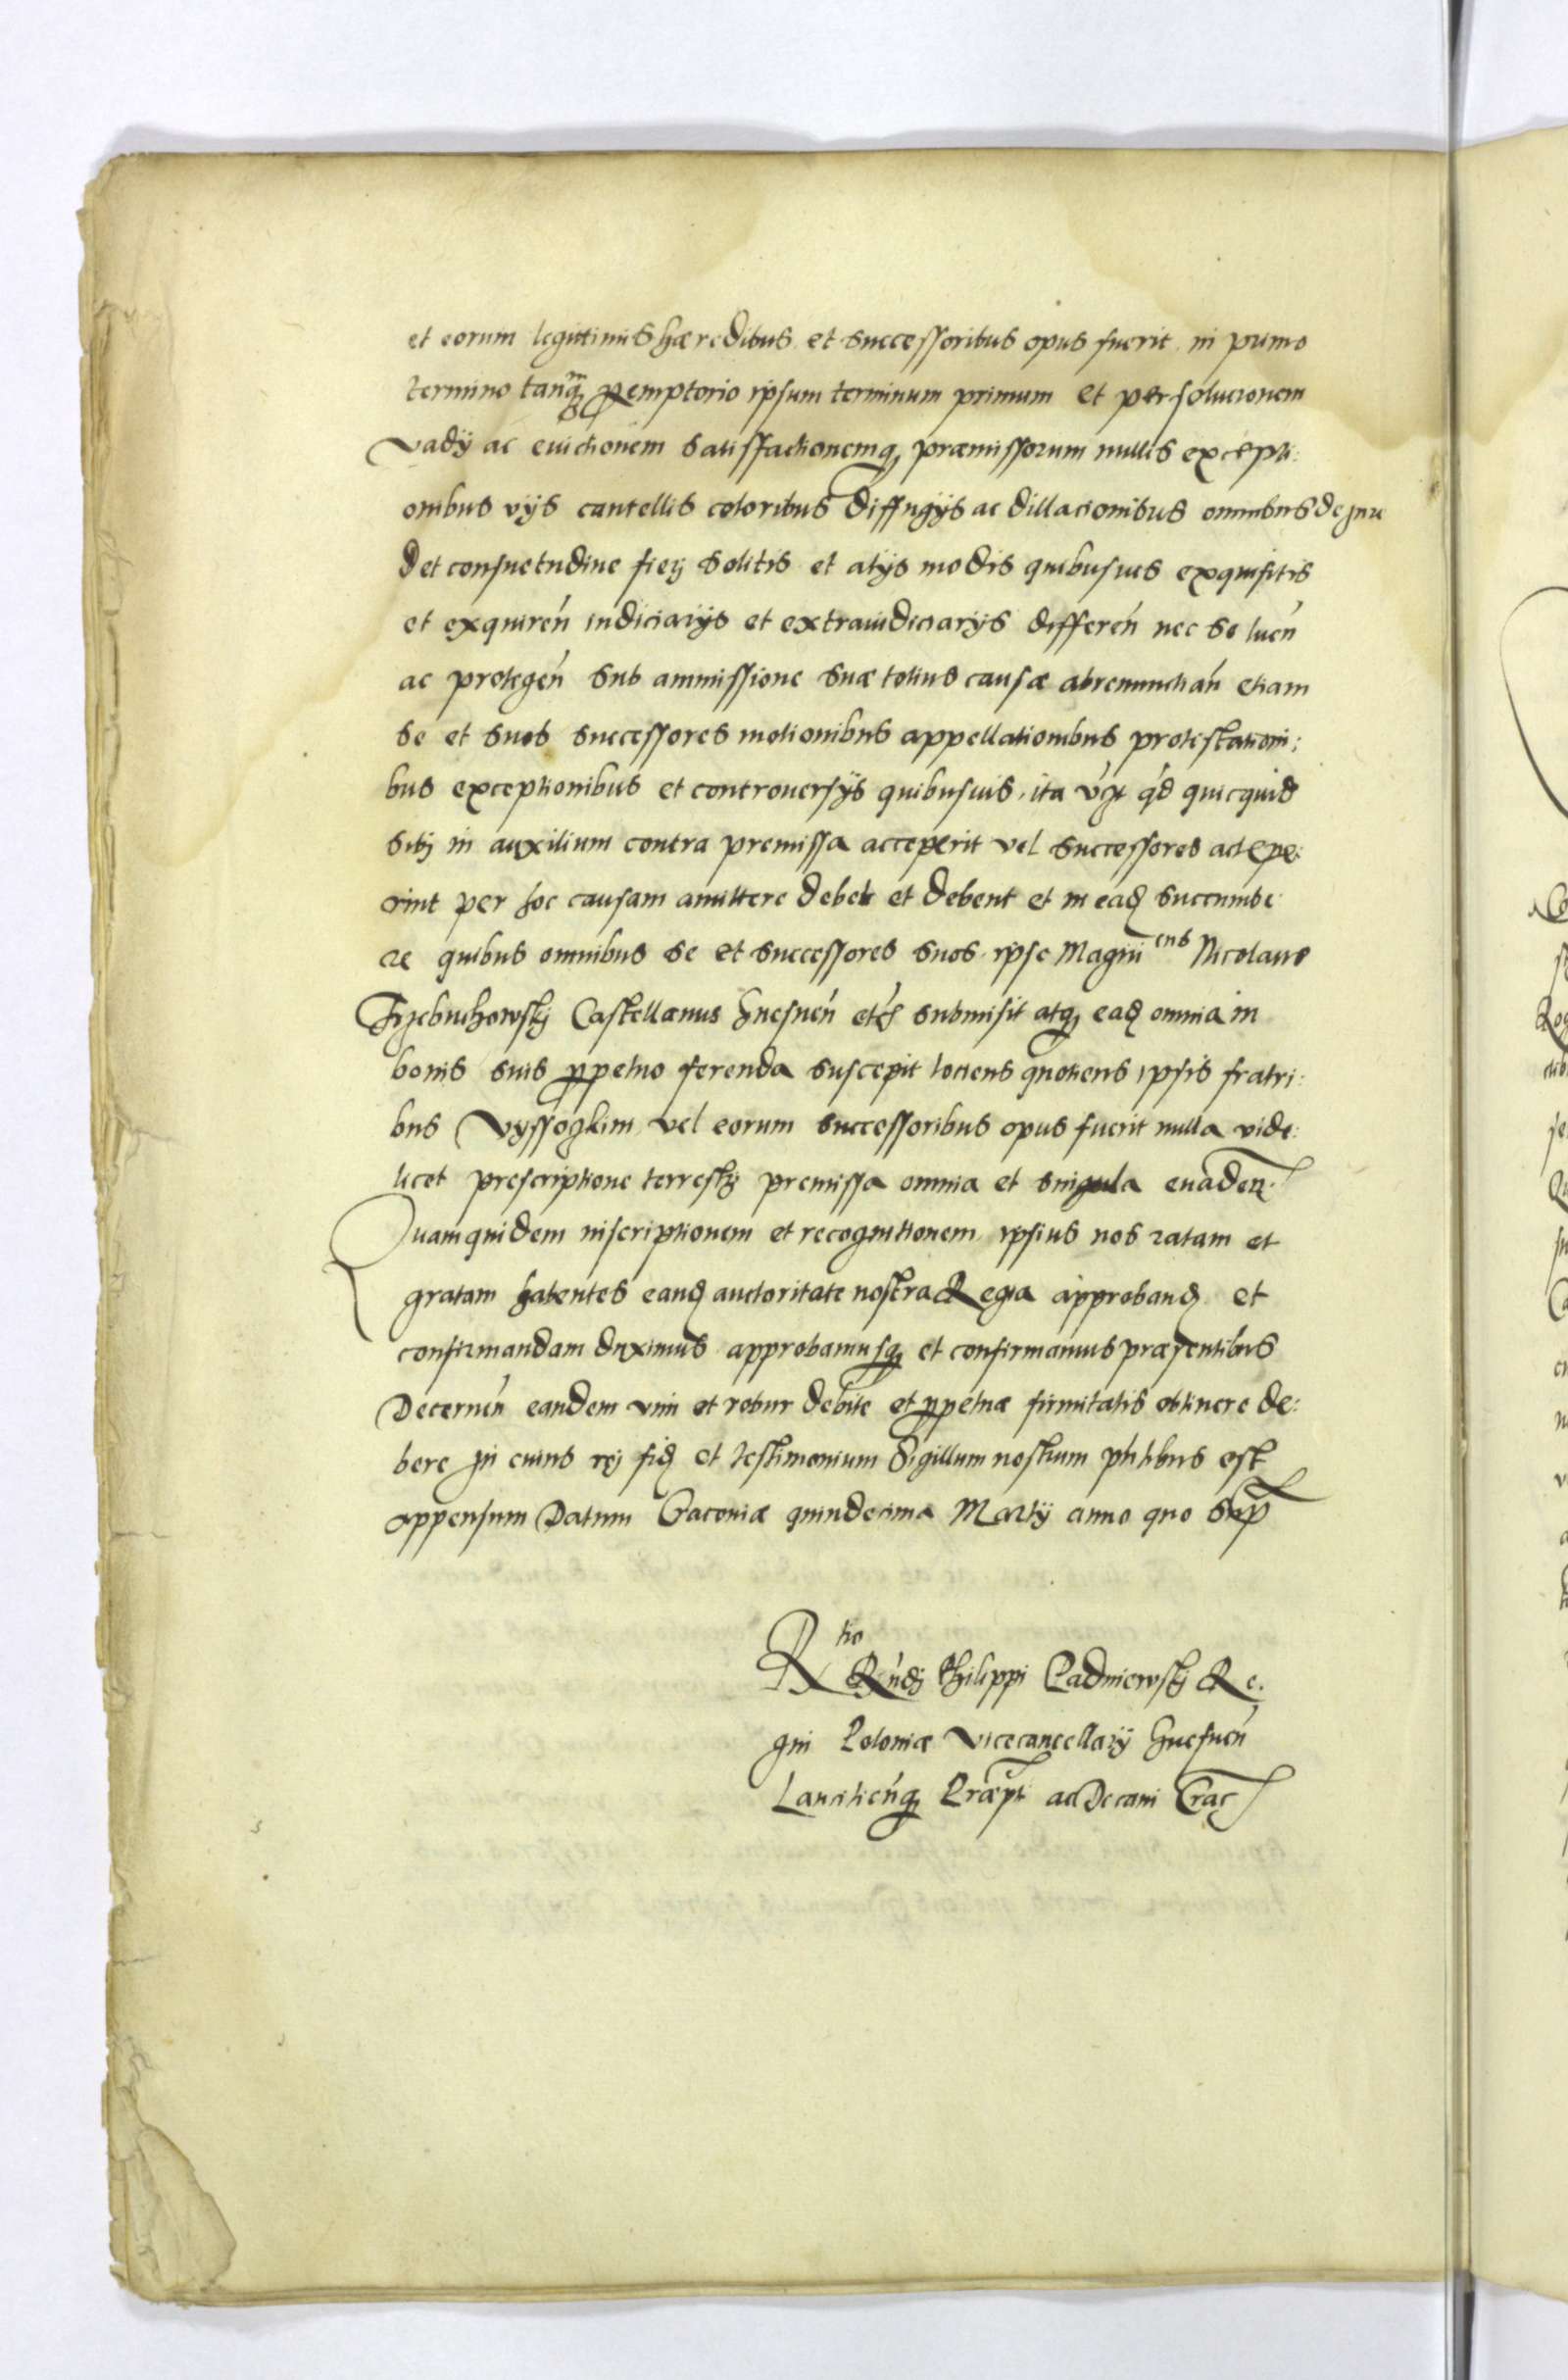 et eorum legittimis hæredibus et successoribus opus fuerit in primo
termino tanq̃ꝫ ꝑemptorio ipsum terminum primum et per solucionem
vadÿ ac euictionem satisfactionemqꝫ præmissorum nullis excepti:
onibus vÿs cautellis coloribus diffugÿs ac dillacionibus omnibus de iure
et consuetudine fierj solitis et alÿs modis quibusuis exquisitis
et exquireń iudiciarÿs et extraiudiciarÿs differeń nec se tueń
ac protegeń sub ammissione suæ totius causæ abrenunctiań etiam
se et suos successores motionibus appellationibus protestationi:
bus exceptionibus et controuersÿs quibusuis, ita qd́ quicquid
sibj in auxilium contra premissa acceperit vel successores accepe:
rint per hoc causam amittere debet et debent et in eadꝫ succumbe
re quibus omnibus se et successores suos ipse Magniens Nicolaus
Trzebuchowskj Castellanus Gnesneń etc submisit atqꝫ eadꝫ omnia in
bonis suis ꝑpetuo ferenda suscepit tociens quotiens ipsis fratri:
bus Vyssogkim vel eorum successoribus opus fuerit nulla vide:
licet prescriptione terrestrj premissa omnia et singula euadeń.
Quamquidem inscriptionem et recognitionem ipsius nos ratam et
gratam habentes eandꝫ auctoritate nostra Regia approbandꝫ et
confirmandam duximus approbamusqꝫ et confirmamus præsentibus
Decerneń eandem vim et robur debite et ꝑpetuæ firmitatis obtinere de:
bere In cuius rej fidꝫ et testimonium Sigillum nostrum pñtibus est
appensum Datum Cracouiæ quindecima Martÿ anno quo supra
Rtio Rńdj Philippi Padniewskj Re:
gni Poloniæ Vicecancellarÿ Gnesneń
Lancicieńqꝫ Præpti ac Decani Crac